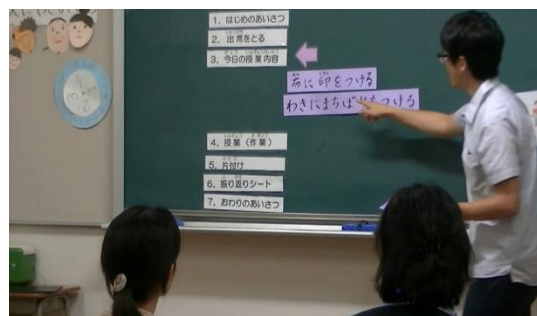 1. はじめのあいさつ
2. 出席をとる
3. 今日の授業内容
布に印をつける
わきにまちば をつける
4. 授業（作業）
5. 片付け
6. 振り返りシート
7. おわりのあいさつ